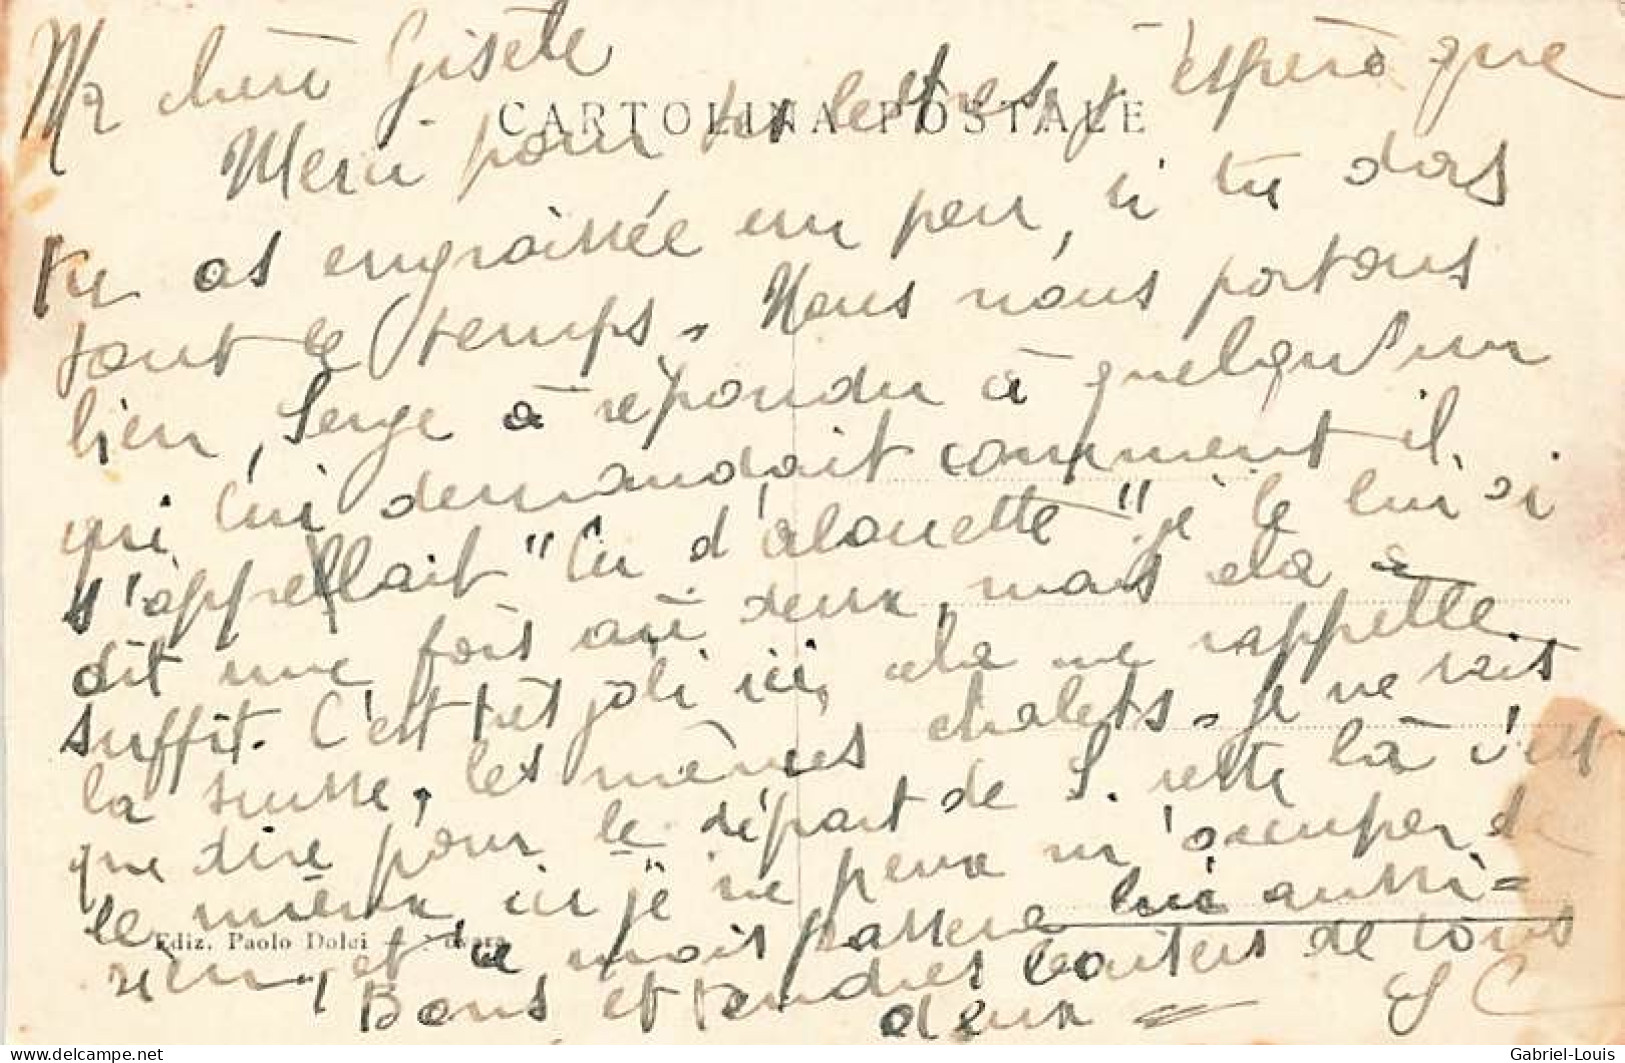 Ma chere Gisete
CARTOLINA POSTALE
Merci pour tes lettres, j'espère que
tu as engraissée un peu, si tu dors
tout le temps. Nous nous portons
bien, Serge à répondu à quelqu'un
qui lui demandait comment il
s'appellait "Cu d'alouette" je le lui ai
dit une fois au deux, mais cela a
suffit. C'est très joli ici, cela me rappelle
la suisse, les mêmes chalets. Je ne sais
que dire pour le départ de S. reste là c'est
le mieux, ici je ne peux m'occuper de
rien, et ce mois passera lui aussi =
Bons et tendres baisers de tous
deux
Ediz. Paolo Dolci
Gabriel-Louis
delcampe.net